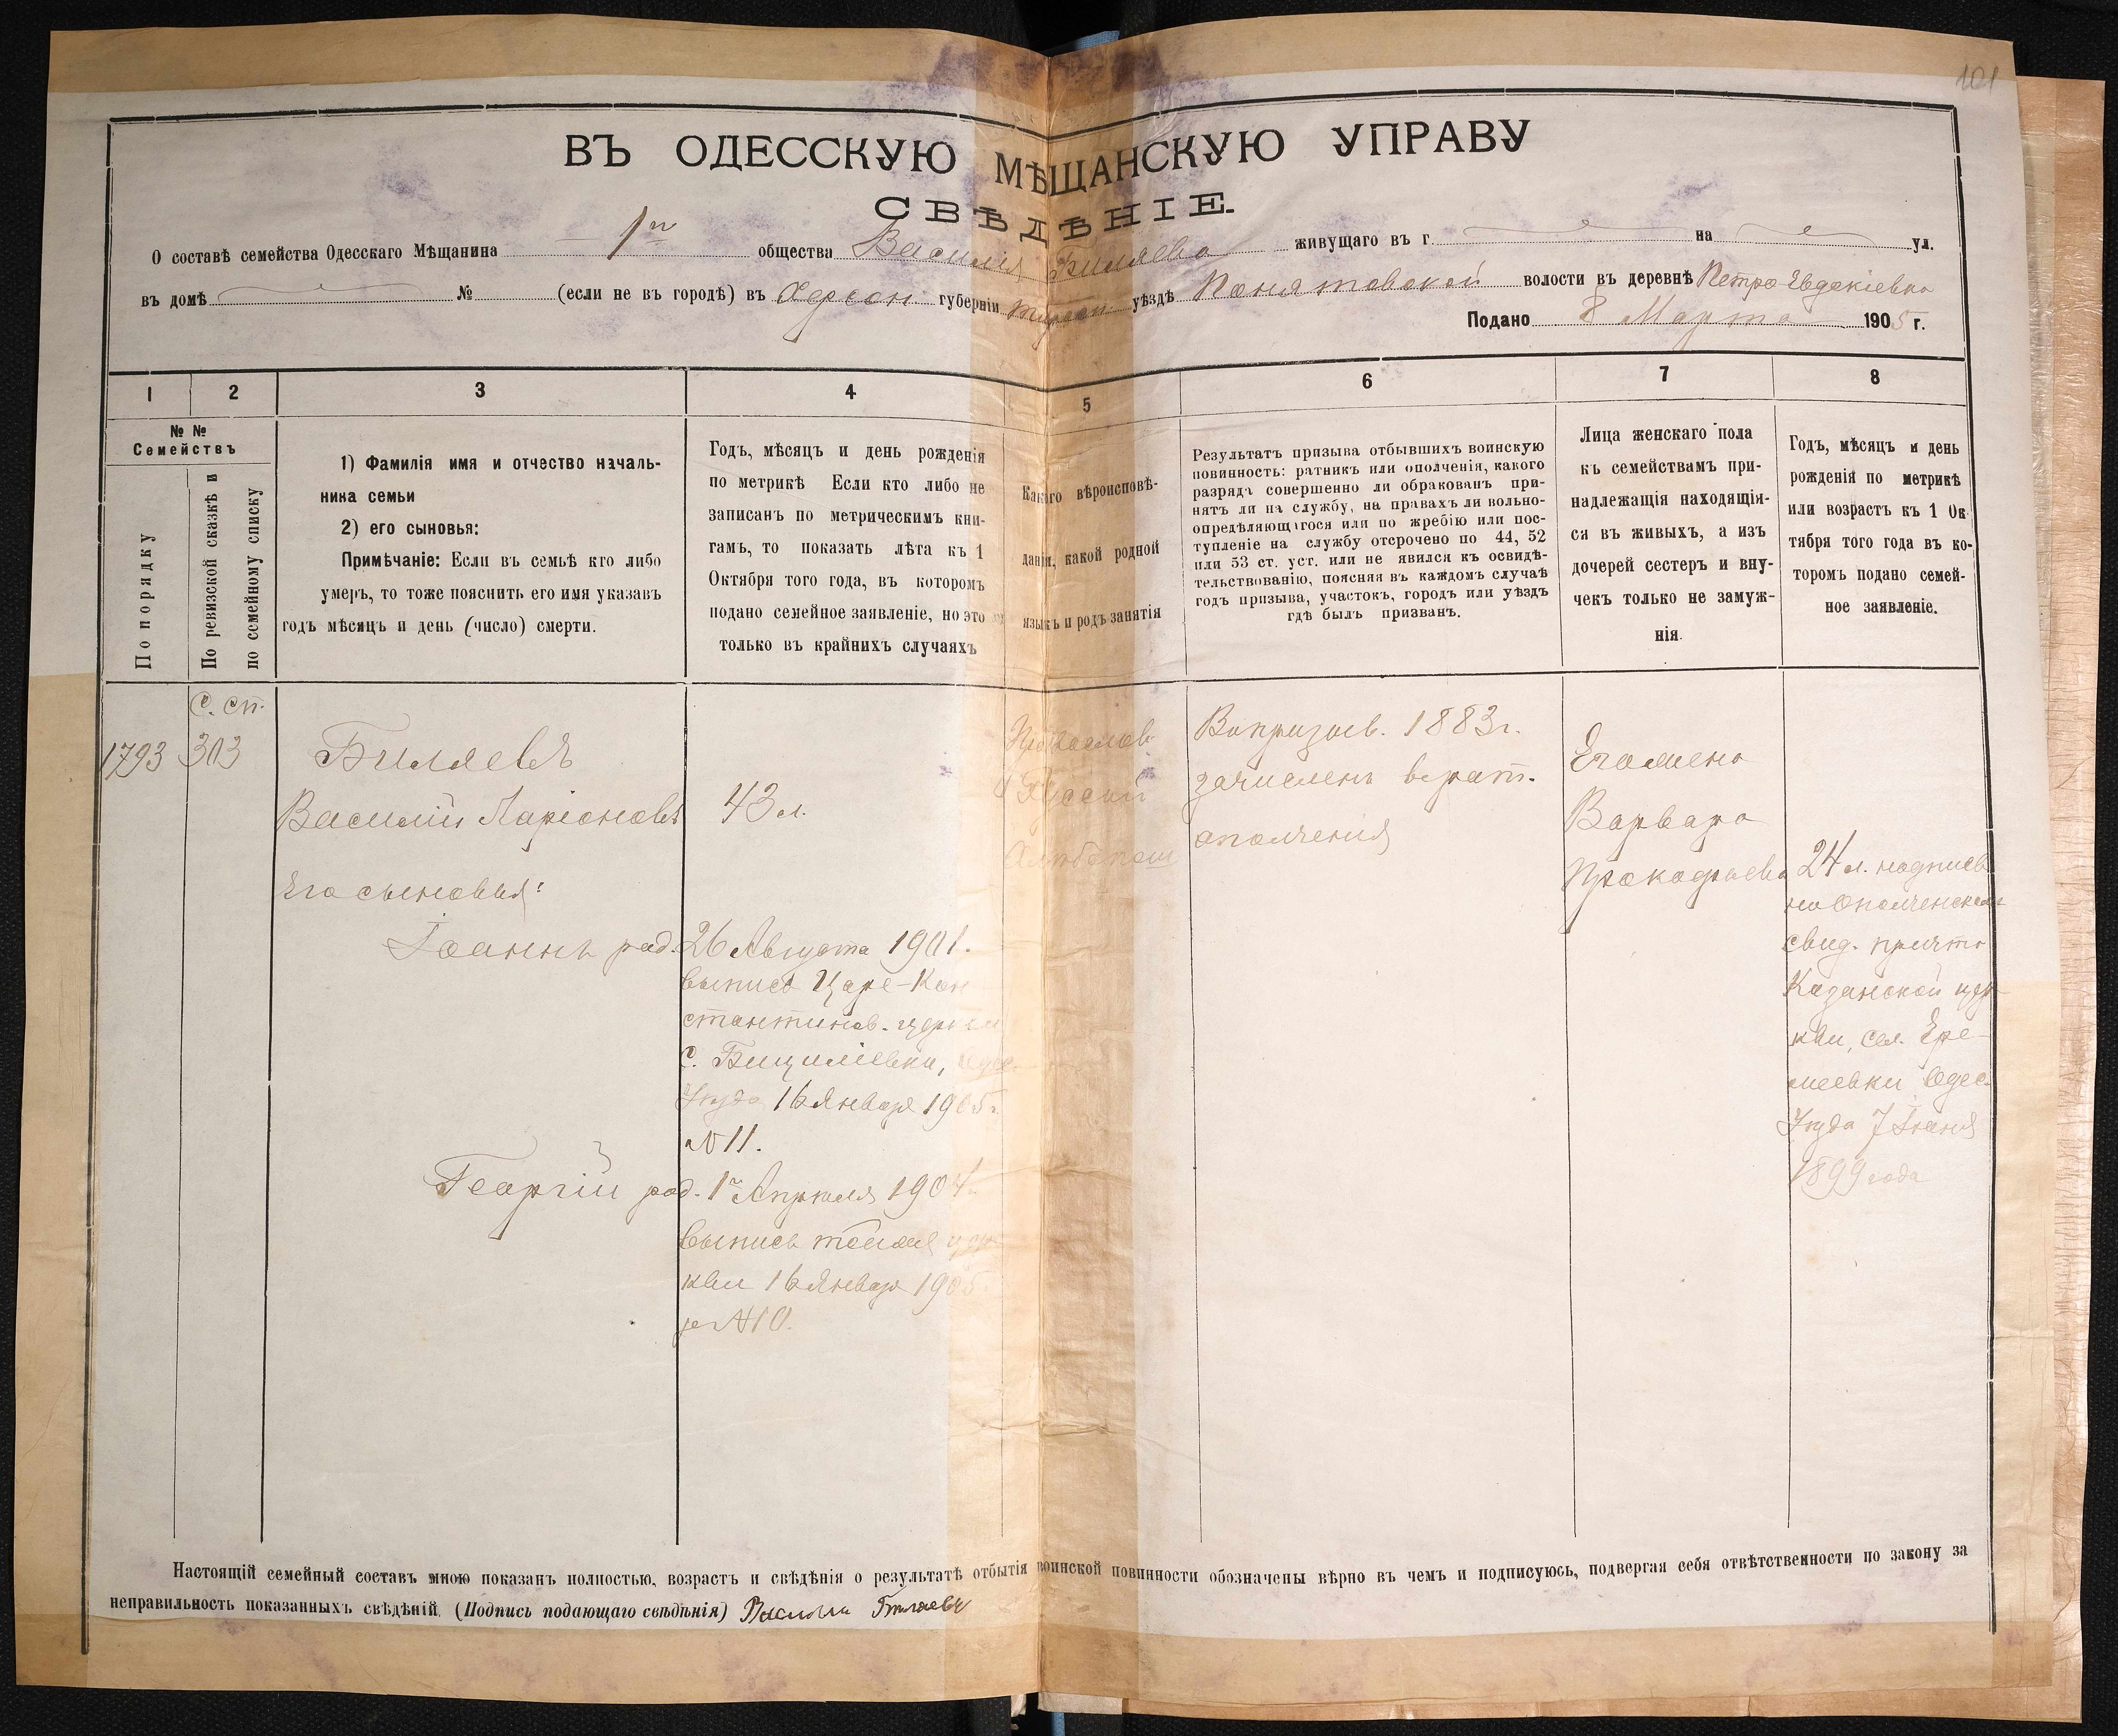 101
ВЪ ОДЕССКУЮ МѢЩАНСКУЮ УПРАВУ
СВѢДѢНІЕ.
О составѣ семейства Одесскаго Мѣщанина 1го общества Василія Биляева живущаго въ г. на ул.
въ домѣ № (если не въ городѣ) въ Херсон губерніи Тирасп уѣздѣ Понятовской волости въ деревнѣ Петро-Евдокіевка
Подано 8 Марта 1905 г.
1 2 3 4 5 6 7 8
№ №
Семействъ
По порядку
По ревизской сказкѣ и
по семейному списку
1) Фамилія имя и отчество началь-
ника семьи
2) его сыновья:
Примѣчаніе: Если въ семьѣ кто либо
умеръ, то тоже пояснить его имя указавъ
годъ мѣсяцъ и день (число) смерти.
Годъ, мѣсяцъ и день рожденія
по метрикѣ Если кто либо не
записанъ по метрическимъ кни-
гамъ, то показать лѣта къ 1
Октября того года, въ которомъ
подано семейное заявленіе, но это
только въ крайнихъ случаяхъ
Какого вѣроисповѣ-
данія, какой родной
языкъ и родъ занятія
Результатъ призыва отбывшихъ воинскую
повинность: ратникъ или ополченія, какого
разряда совершенно ли обракованъ при-
нятъ ли на службу, на правахъ ли вольно-
опредѣляющагося или по жребію или пос-
тупленіе на службу отсрочено по 44, 52
или 53 ст. уст. или не явился къ освидѣ-
тельствованію, поясняя въ каждомъ случаѣ
годъ призыва, участокъ, городъ или уѣздъ
гдѣ былъ призванъ.
Лица женскаго пола
къ семействамъ при-
надлежащія находящія-
ся въ живыхъ, а изъ
дочерей сестеръ и вну-
чекъ только не замуж-
нія.
Годъ, мѣсяцъ и день
рожденія по метрикѣ
или возрастъ къ 1 Ок-
тября того года въ ко-
торомъ подано семей-
ное заявленіе.
с. сп.
1793 303
Биляевъ
Василій Ларіоновъ
43 л.
Его сыновья:
Іоаннъ род. 26 Августа 1901.
выпись Царе-Кон
стантинов. церкви
с. Бициліевки, Одес.
Уѣзда 16 Января 1905 г.
№ 11.
Георгій род. 1го Апрѣля 1904.
выпись той же цер
кви 16 Января 1905
за № 10.
Православ.
Русскій
Хлѣбопаш
Въ призыв. 1883 г.
зачисленъ въ рат.
ополченія
Его жена
Варвара
Прокофьева
24 л. надпись
на Ополченском
свид. причта
Казанской цер
кви, сел. Ере-
меевки Одес.
Уѣзда 7 Іюня
1899 года
Настоящій семейный составъ мною показанъ полностью, возрастъ и свѣдѣнія о результатѣ отбытія воинской повинности обозначены вѣрно въ чемъ и подписуюсь, подвергая себя отвѣтственности по закону за
неправильность показанныхъ свѣдѣній. (Подпись подающаго свѣдѣнія) Василий Биляевъ